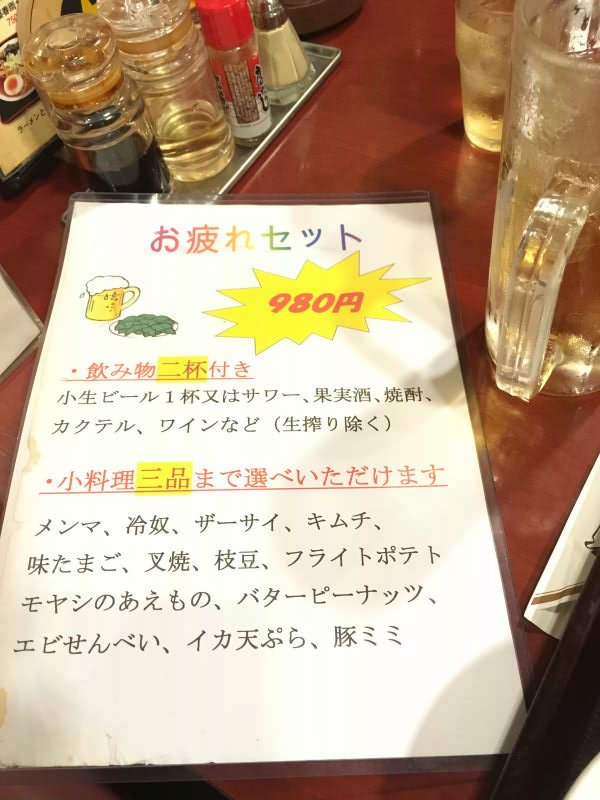 ラーメンと
お疲れセット
980円
・飲み物二杯付き
小生ビール１杯又はサワー、果実酒、焼酎、
カクテル、ワインなど（生搾り除く）
・小料理三品まで選べいただけます
メンマ、冷奴、ザーサイ、キムチ、
味たまご、叉焼、枝豆、フライトポテト
モヤシのあえもの、バターピーナッツ、
エビせんべい、イカ天ぷら、豚ミミ